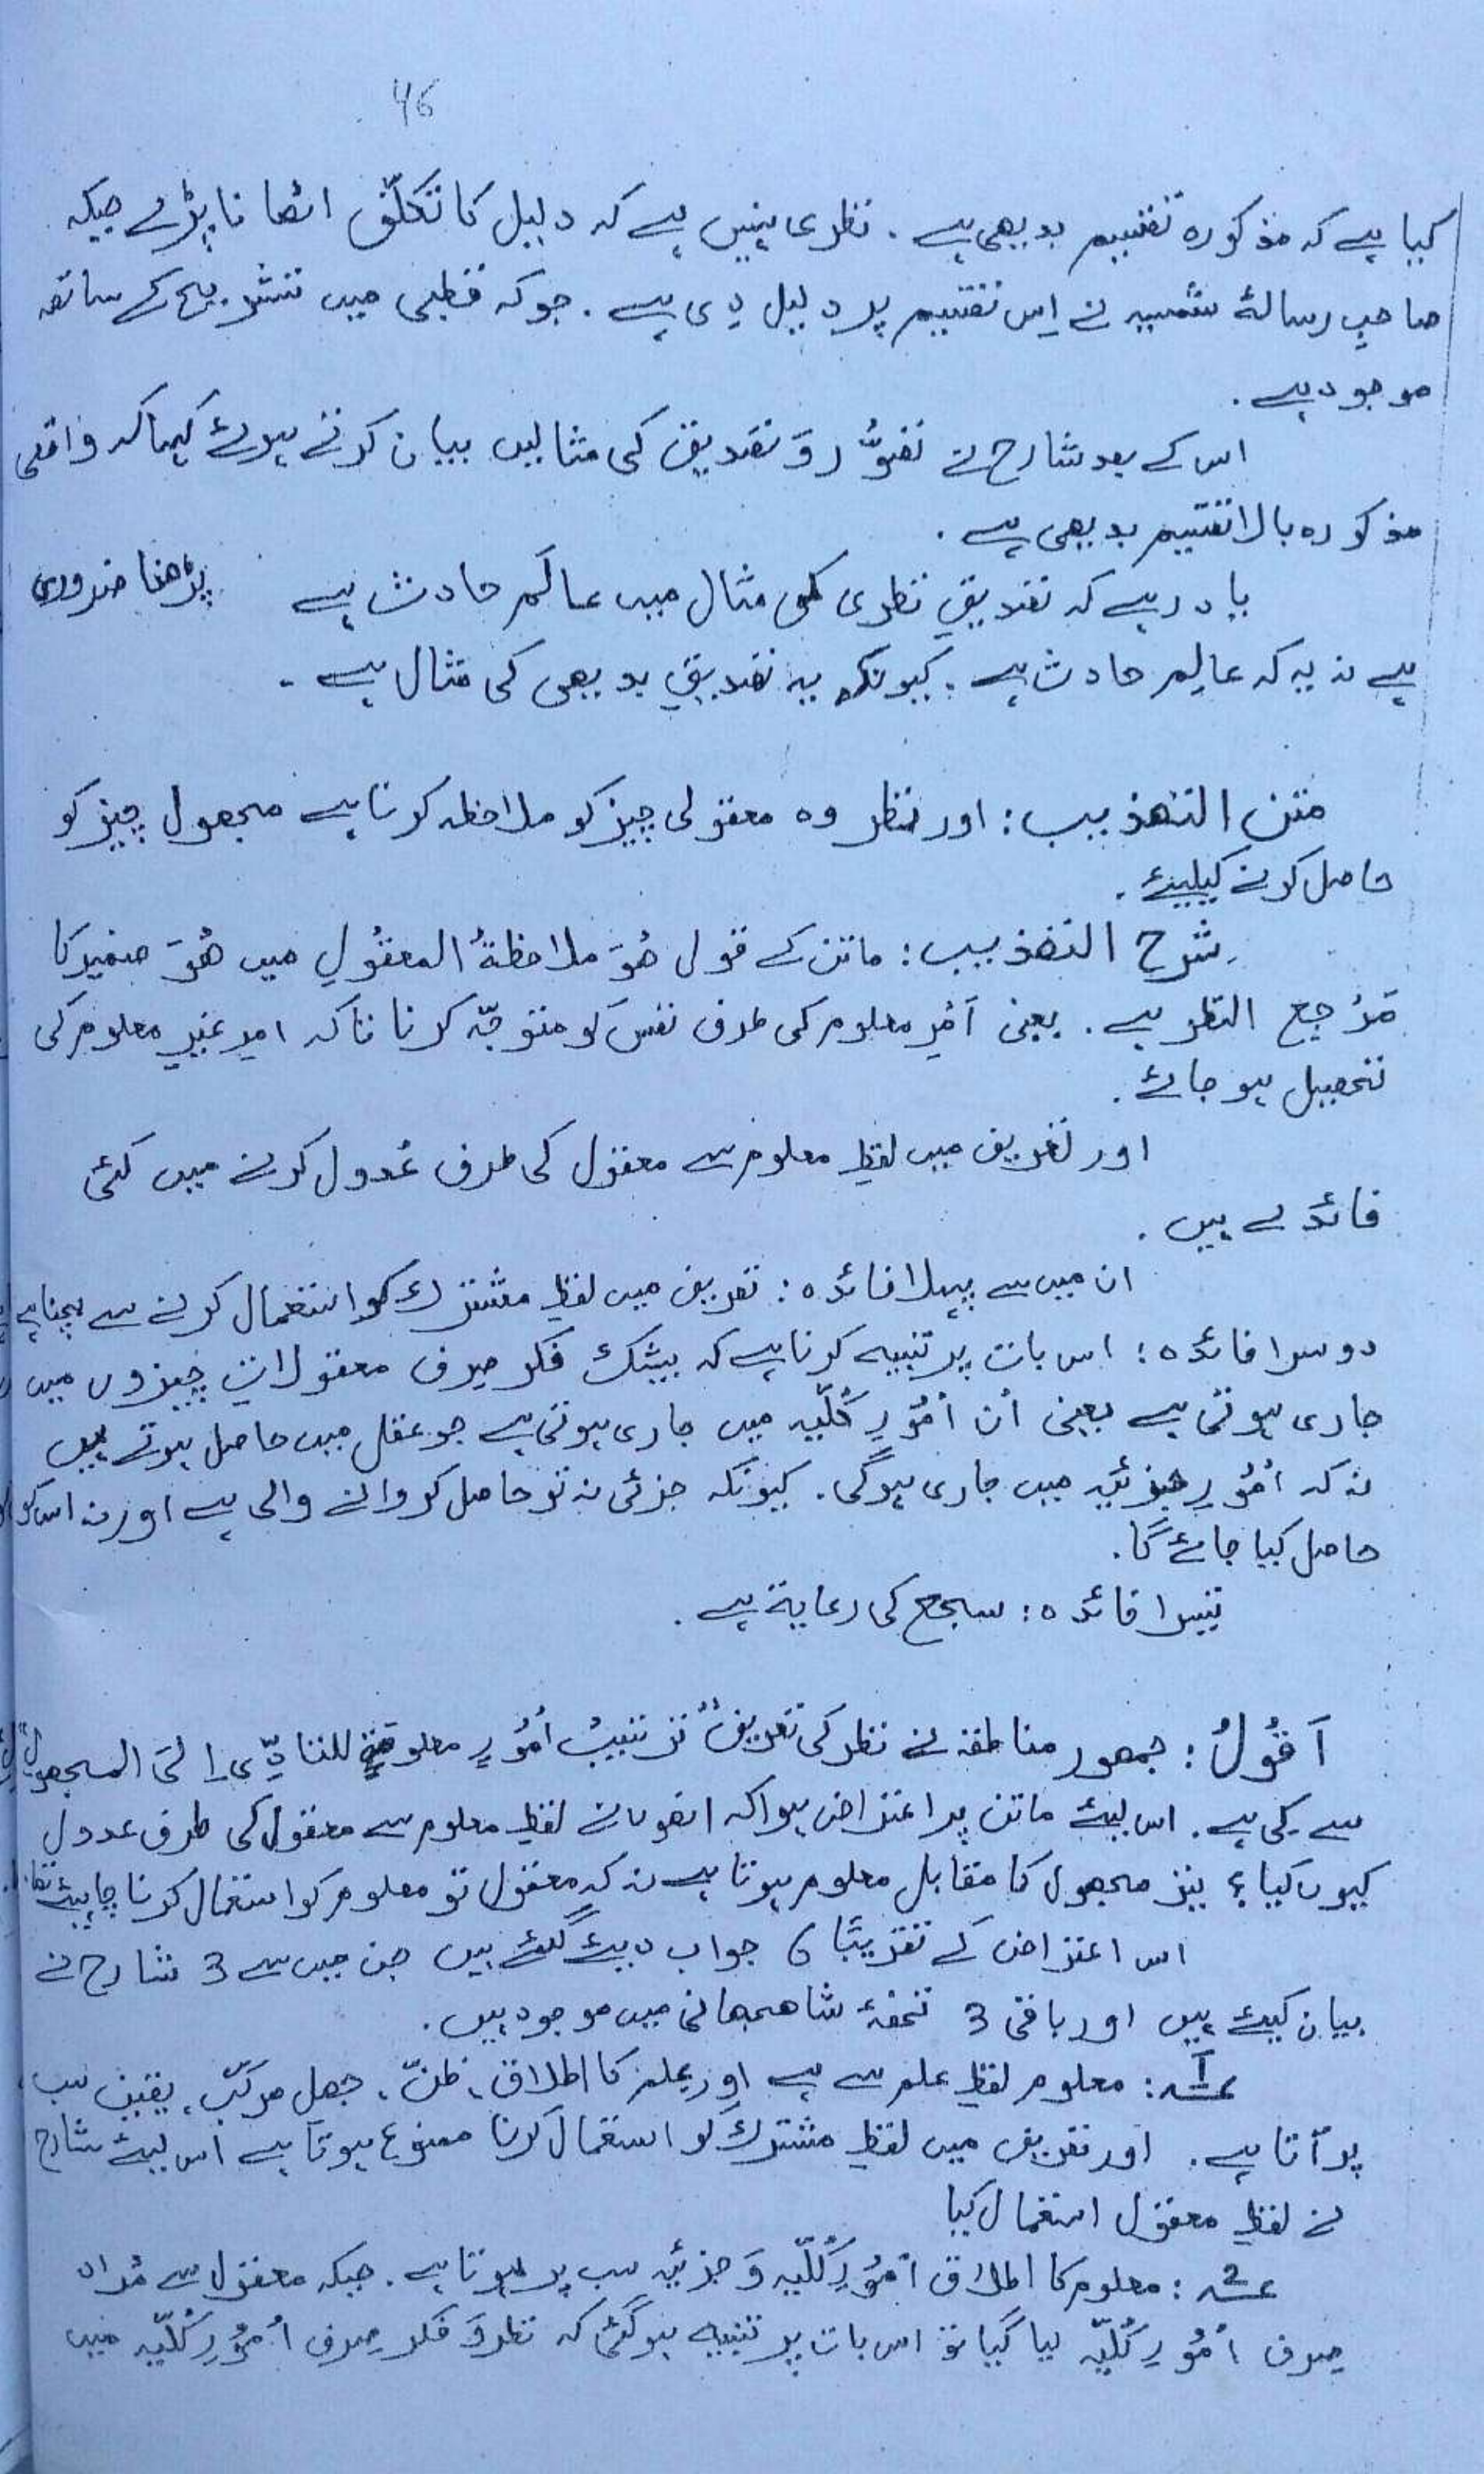 46
کیا ہے کہ مذکورہ تقسیم بدیھی ہے۔ نظری نہیں ہے کہ دلیل کا تکلّف اٹھانا پڑے جبکہ
صاحبِ رسالۂ شمسیہ نے اِس تقسیم پر دلیل دی ہے۔ جو کہ قطبی میں تشریح کے ساتھ
موجود ہے۔
اس کے بعد شارح نے تصوُّر وَ تصدیق کی مثالیں بیان کرتے ہوئے کہا کہ واقعی
مذکورہ بالا تقسیم بدیھی ہے۔
یاد رہے کہ تصدیقِ نظری کی مثال میں عالَم حادث ہے پڑھنا ضروری
ہے نہ یہ کہ عالِم حادث ہے۔ کیونکہ یہ تصدیقِ بدیھی کی مثال ہے۔
متن التھذیب: اور نظر وہ معقولی چیز کو ملاحظہ کرنا ہے مجھول چیز کو
حاصل کرنے کیلیئے۔
شرح التھذیب: ماتن کے قول ھُوَ ملاحظۃُ المعقُولِ میں ھُوَ ضمیر کا
مَرْجِع النظر ہے۔ یعنی اَمْرِ معلوم کی طرف نفس کو متوجّہ کرنا تاکہ امرِ غیرِ معلوم کی
تحصیل ہو جائے۔
اور تعریف میں لفظِ معلوم سے معقول کی طرف عُدول کرنے میں کئی
فائدے ہیں۔
ان میں سے پہلا فائدہ: تعریف میں لفظِ مشترک کو استعمال کرنے سے بچنا ہے
دوسرا فائدہ: اس بات پر تنبیہ کرنا ہے کہ بیشک فکر صِرف معقولاتی چیزوں میں
جاری ہوتی ہے یعنی اُن اُمُوْرِ کُلّیہ میں جاری ہوتی ہے جو عقل میں حاصل ہوتے ہیں
نہ کہ اُمُوْرِ جزئیہ میں جاری ہوگی۔ کیونکہ جزئی نہ تو حاصل کروانے والی ہے اور نہ اس کو
حاصل کیا جائے گا۔
تیسرا فائدہ: سجع کی رعایۃ ہے۔
اَقُوْلُ: جمھور مناطقہ نے نظر کی تعریف تر تیبُ اُمُوْرٍ معلومۃٍ للتادِّی اِلَی المجھول
سے کی ہے۔ اس لیئے ماتن پر اعتراض ہوا کہ انھوں نے لفظِ معلوم سے معقول کی طرف عدول
کیوں کیا؟ نیز مجھول کا مقابل معلوم ہوتا ہے نہ کہ معقول تو معلوم کو استعمال کرنا چاہیئے تھا۔
اس اعتراض کے تقریبًا 6 جواب دیئے گئے ہیں جن میں سے 3 شارح نے
بیان کیئے ہیں اور باقی 3 تحفۂ شاھجھانی میں موجود ہیں۔
؏1: معلوم لفظِ علم سے ہے اور علم کا اطلاق، ظنّ، جھلِ مرکّب، یقین سب
پر آتا ہے۔ اور تعریف میں لفظِ مشترک کو استعمال کرنا ممنوع ہوتا ہے اس لیئے شارح
نے لفظِ معقول استعمال کیا
؏2: معلوم کا اطلاق اُمُوْرِ کُلّیہ وَ جزئیہ سب پر ہوتا ہے۔ جبکہ معقول سے مُراد
صِرف اُمُوْرِ کُلّیہ لیا گیا تو اس بات پر تنبیہ ہو گئی کہ نظر وَ فکر صِرف اُمُوْرِ کُلّیہ میں